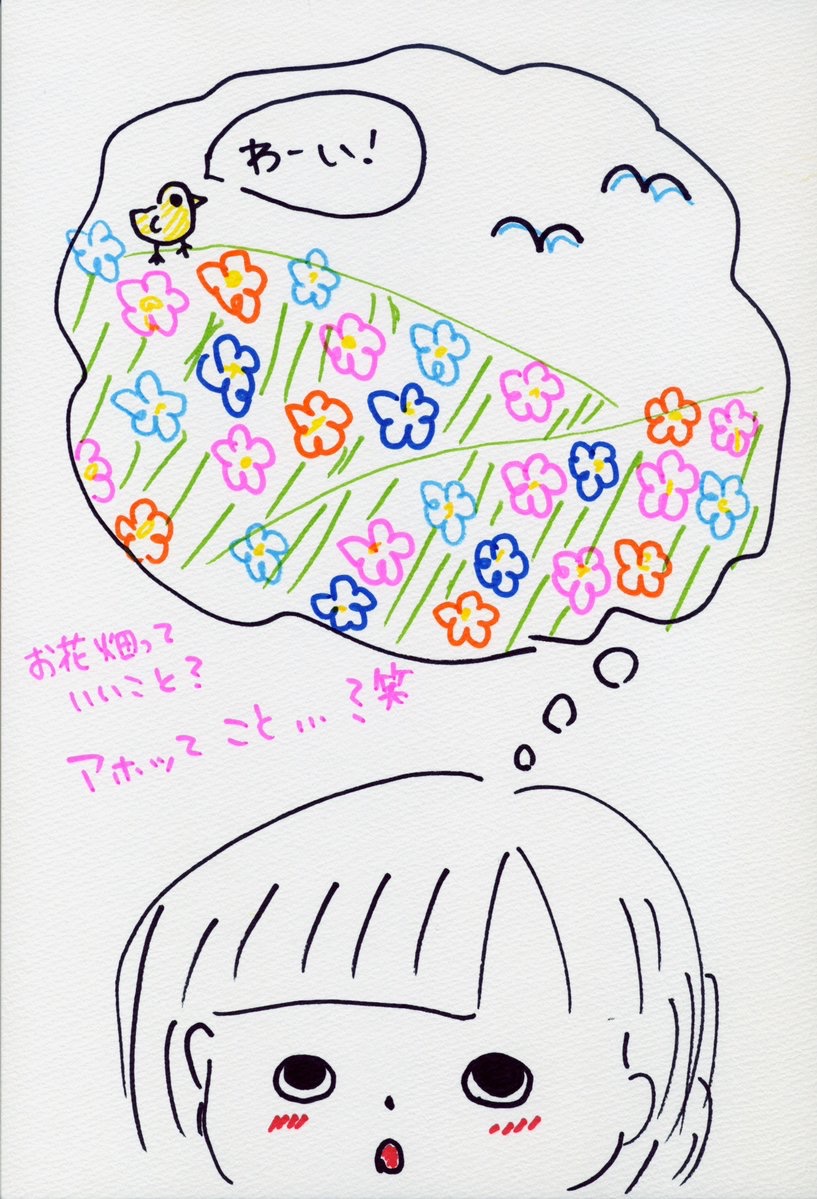 わーい!
お花畑って
いいこと?
アホってこと...?笑